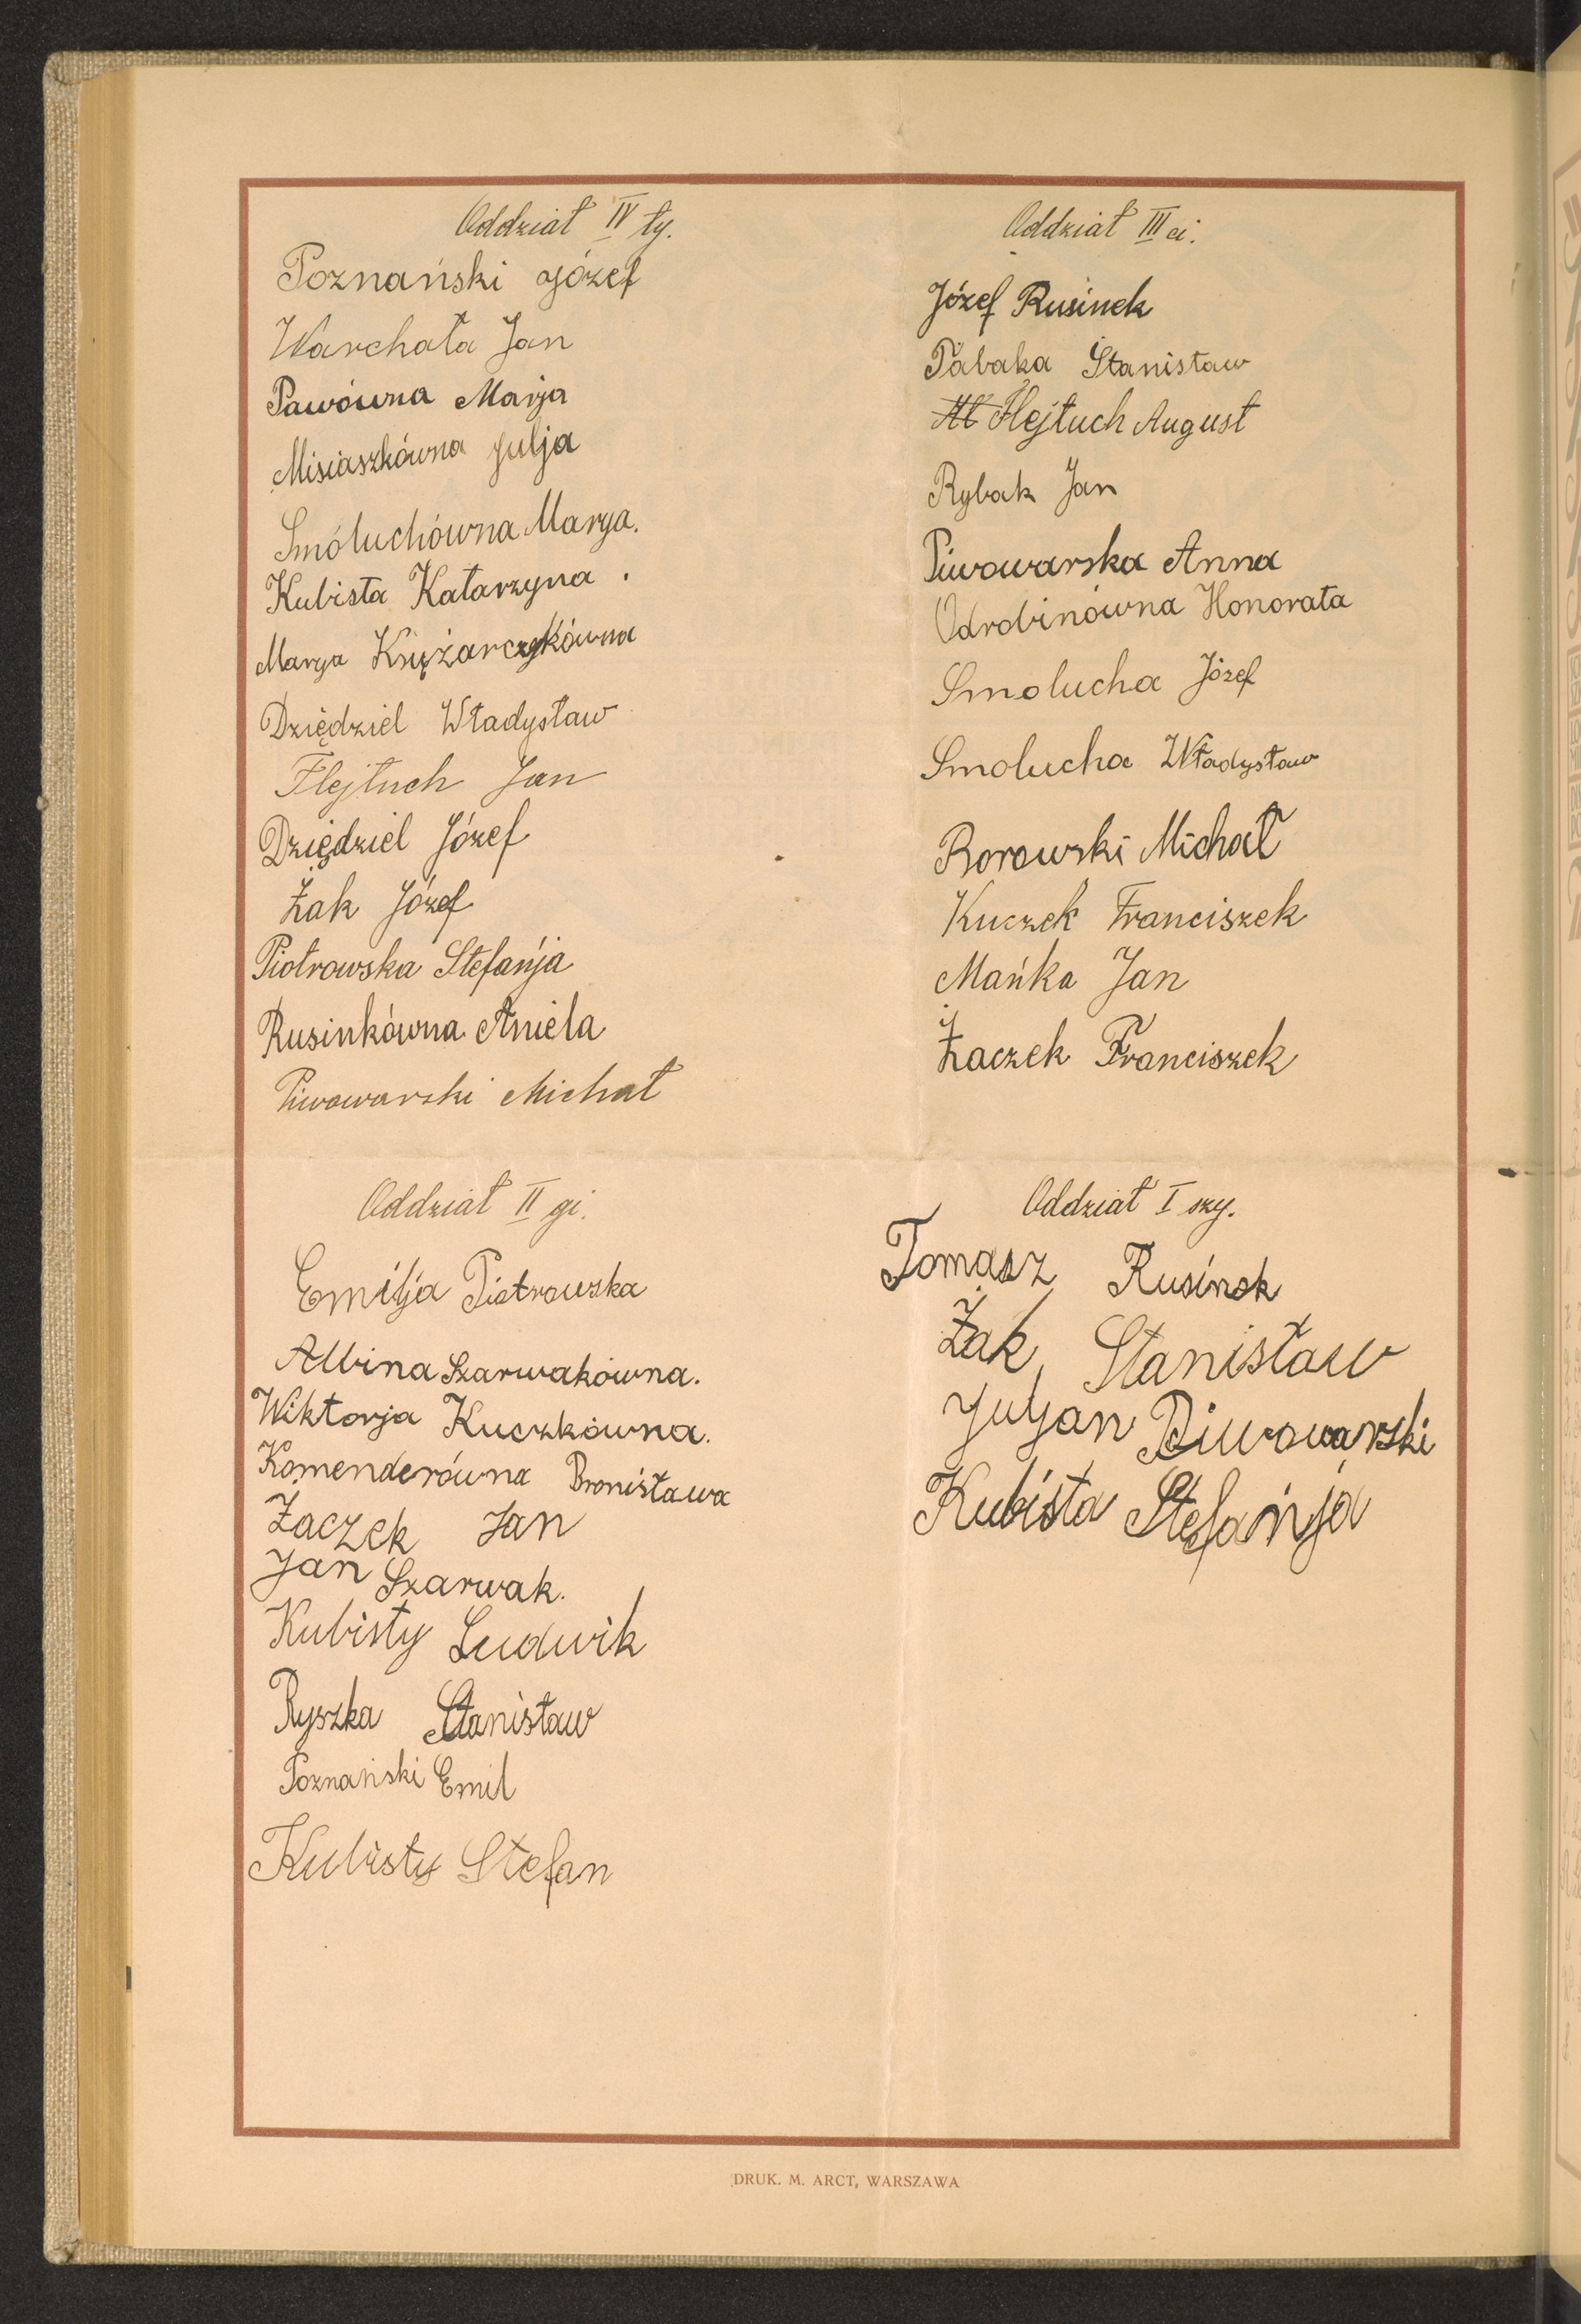 Oddział IV ty.
Poznański Józef
Warchała Jan
Pawówna Marja
Misiaszkówna Julja
Smóluchówna Marya.
Kubista Katarzyna .
Marya Księżarczykówna
Dziędziel Władysław
Flejtuch Jan
Dziędziel Józef
Żak Józef
Piotrowska Stefańja
Rusinkówna Aniela
Piwowarski Michał
Oddział III ci.
Józef Rusinek
Pabaka Stanisław
Flejtuch August
Rybak Jan
Piwowarska Anna
Odrobinówna Honorata
Smolucha Józef
Smolucha Władysław
Borowski Michał
Kuczek Franciszek
Mańka Jan
Żaczek Franciszek
Oddział II gi.
Emilja Piotrowska
Albina Szarwakówna.
Wiktorja Kuczkówna.
Komenderówna Bronisława
Żaczek Jan
Jan Szarwak.
Kubisty Ludwik
Ryszka Stanisław
Poznański Emil
Kubisty Stefan
Oddział I szy.
Tomasz Rusinek
Żak Stanisław
Juljan Piwowarski
Kubista Stefańja
DRUK. M. ARCT, WARSZAWA